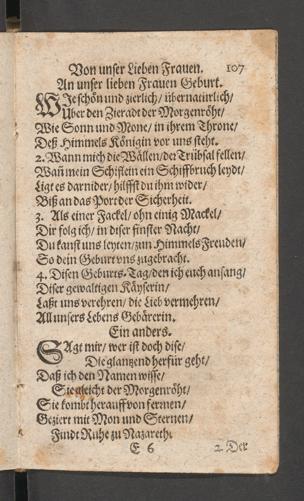 Von unser Lieben Frauen. 107
An unser lieben Frauen Geburt.
WJe schön und zierlich/ übernatürlich/
Uber den Zieradt der Morgenröht/
Wie Sonn und Mone/ in ihrem Throne/
Deß Himmels Königin vor uns steht.
2. Wann mich die Wällen/ der Trübsal fellen/
Wañ mein Schiflein ein Schiffbruch leydt/
Ligt es darnider/ hilffst du ihm wider/
Biß an das Port der Sicherheit.
3. Als einer Fackel/ ohn einig Mackel/
Dir folg ich/ in diser finster Nacht/
Du kanst uns leyten/ zum Himmels Freuden/
So dein Geburt uns zugebracht.
4. Disen Geburts-Tag/ den ich euch ansag/
Diser gewaltigen Käyserin/
Laßt uns verehren/ die Lieb vermehren/
All unsers Lebens Gebärerin.
Ein anders.
SAgt mir/ wer ist doch dise/
Die glantzend herfür geht/
Daß ich den Namen wisse/
Sie gleicht der Morgenröht/
Sie kombt herauff von fermen/
Geziert mit Mon und Sternen/
Findt Ruhe zu Nazareth.
E 6 2. Der